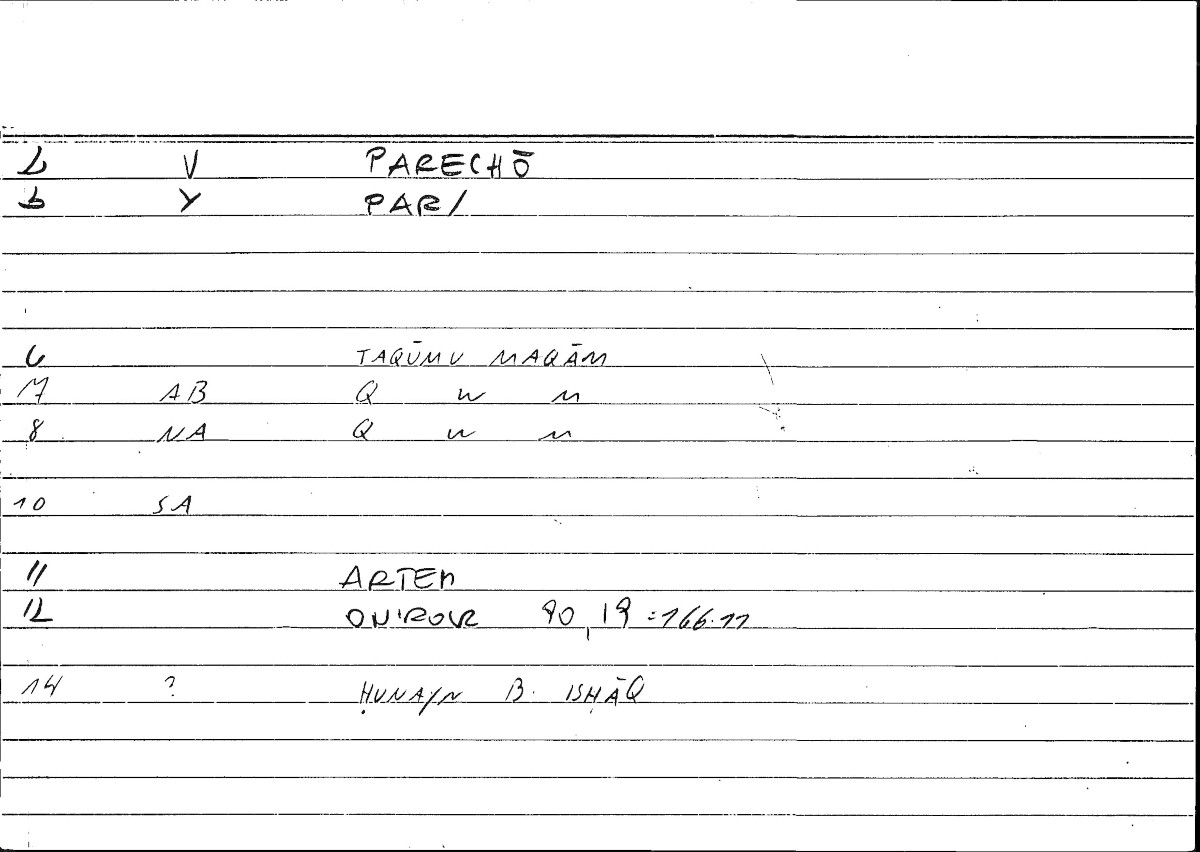 V PARECHŌ
Y PAR/
6 TAQŪMU MAQĀM
7 AB Q w m
8 NA Q w m
10 SA
11 ARTEM
12 ONIROCR 90,19 = 166.11
14 ? ḤUNAYN B. ISḤĀQ